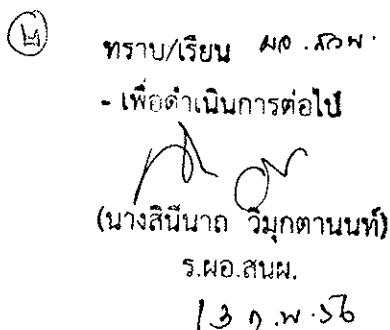 ๒
ทราบ/เรียน ผอ.สวพ.
- เพื่อดำเนินการต่อไป
(นางสินีนาถ วิมุกตานนท์)
ร.ผอ.สนผ.
13 ก.พ. 56